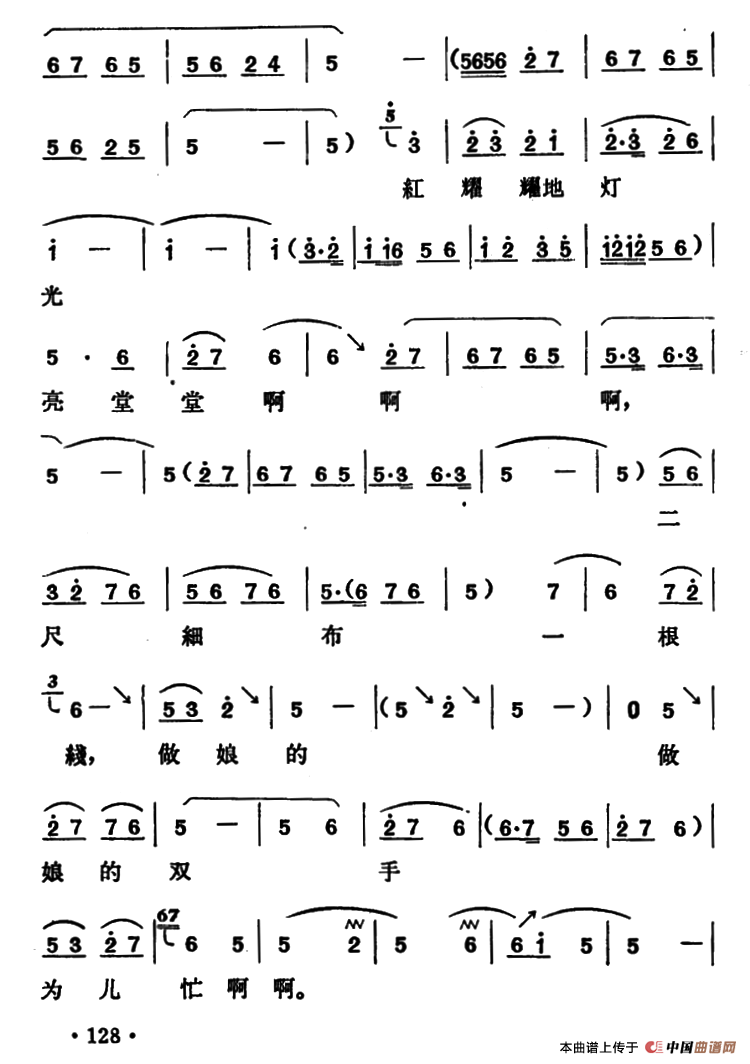 6 7 6 5 | 5 6 2 4 | 5 — | (5656 2 7 | 6 7 6 5 |
5 6 2 5 | 5 — | 5) 5 3 | 2 3 2 1 | 2·3 2 6 |
紅 耀 耀地 灯
1 — | 1 — | 1 (3·2 | 1 16 5 6 | 1 2 3 5 | 1212 5 6) |
光
5 · 6 | 2 7 6 | 6 ↘ 2 7 | 6 7 6 5 | 5·3 6·3 |
亮 堂 堂 啊 啊 啊,
5 — | 5 (2 7 | 6 7 6 5 | 5·3 6·3 | 5 — | 5) 5 6 |
二
3 2 7 6 | 5 6 7 6 | 5·(6 7 6 | 5) 7 | 6 7 2 |
尺 細 布 一 根
3 6 — ↘ | 5 3 2 ↘ | 5 — | (5 ↘ 2 ↘ | 5 —) | 0 5 ↘ |
綫, 做 娘 的 做
2 7 7 6 | 5 — | 5 6 | 2 7 6 | (6·7 5 6 | 2 7 6) |
娘 的 双 手
5 3 2 7 | 67 6 5 | 5 2 | 5 6 | 6 1 ↗ 5 | 5 — |
为 儿 忙 啊 啊。
· 128 ·
本曲谱上传于 中国曲谱网